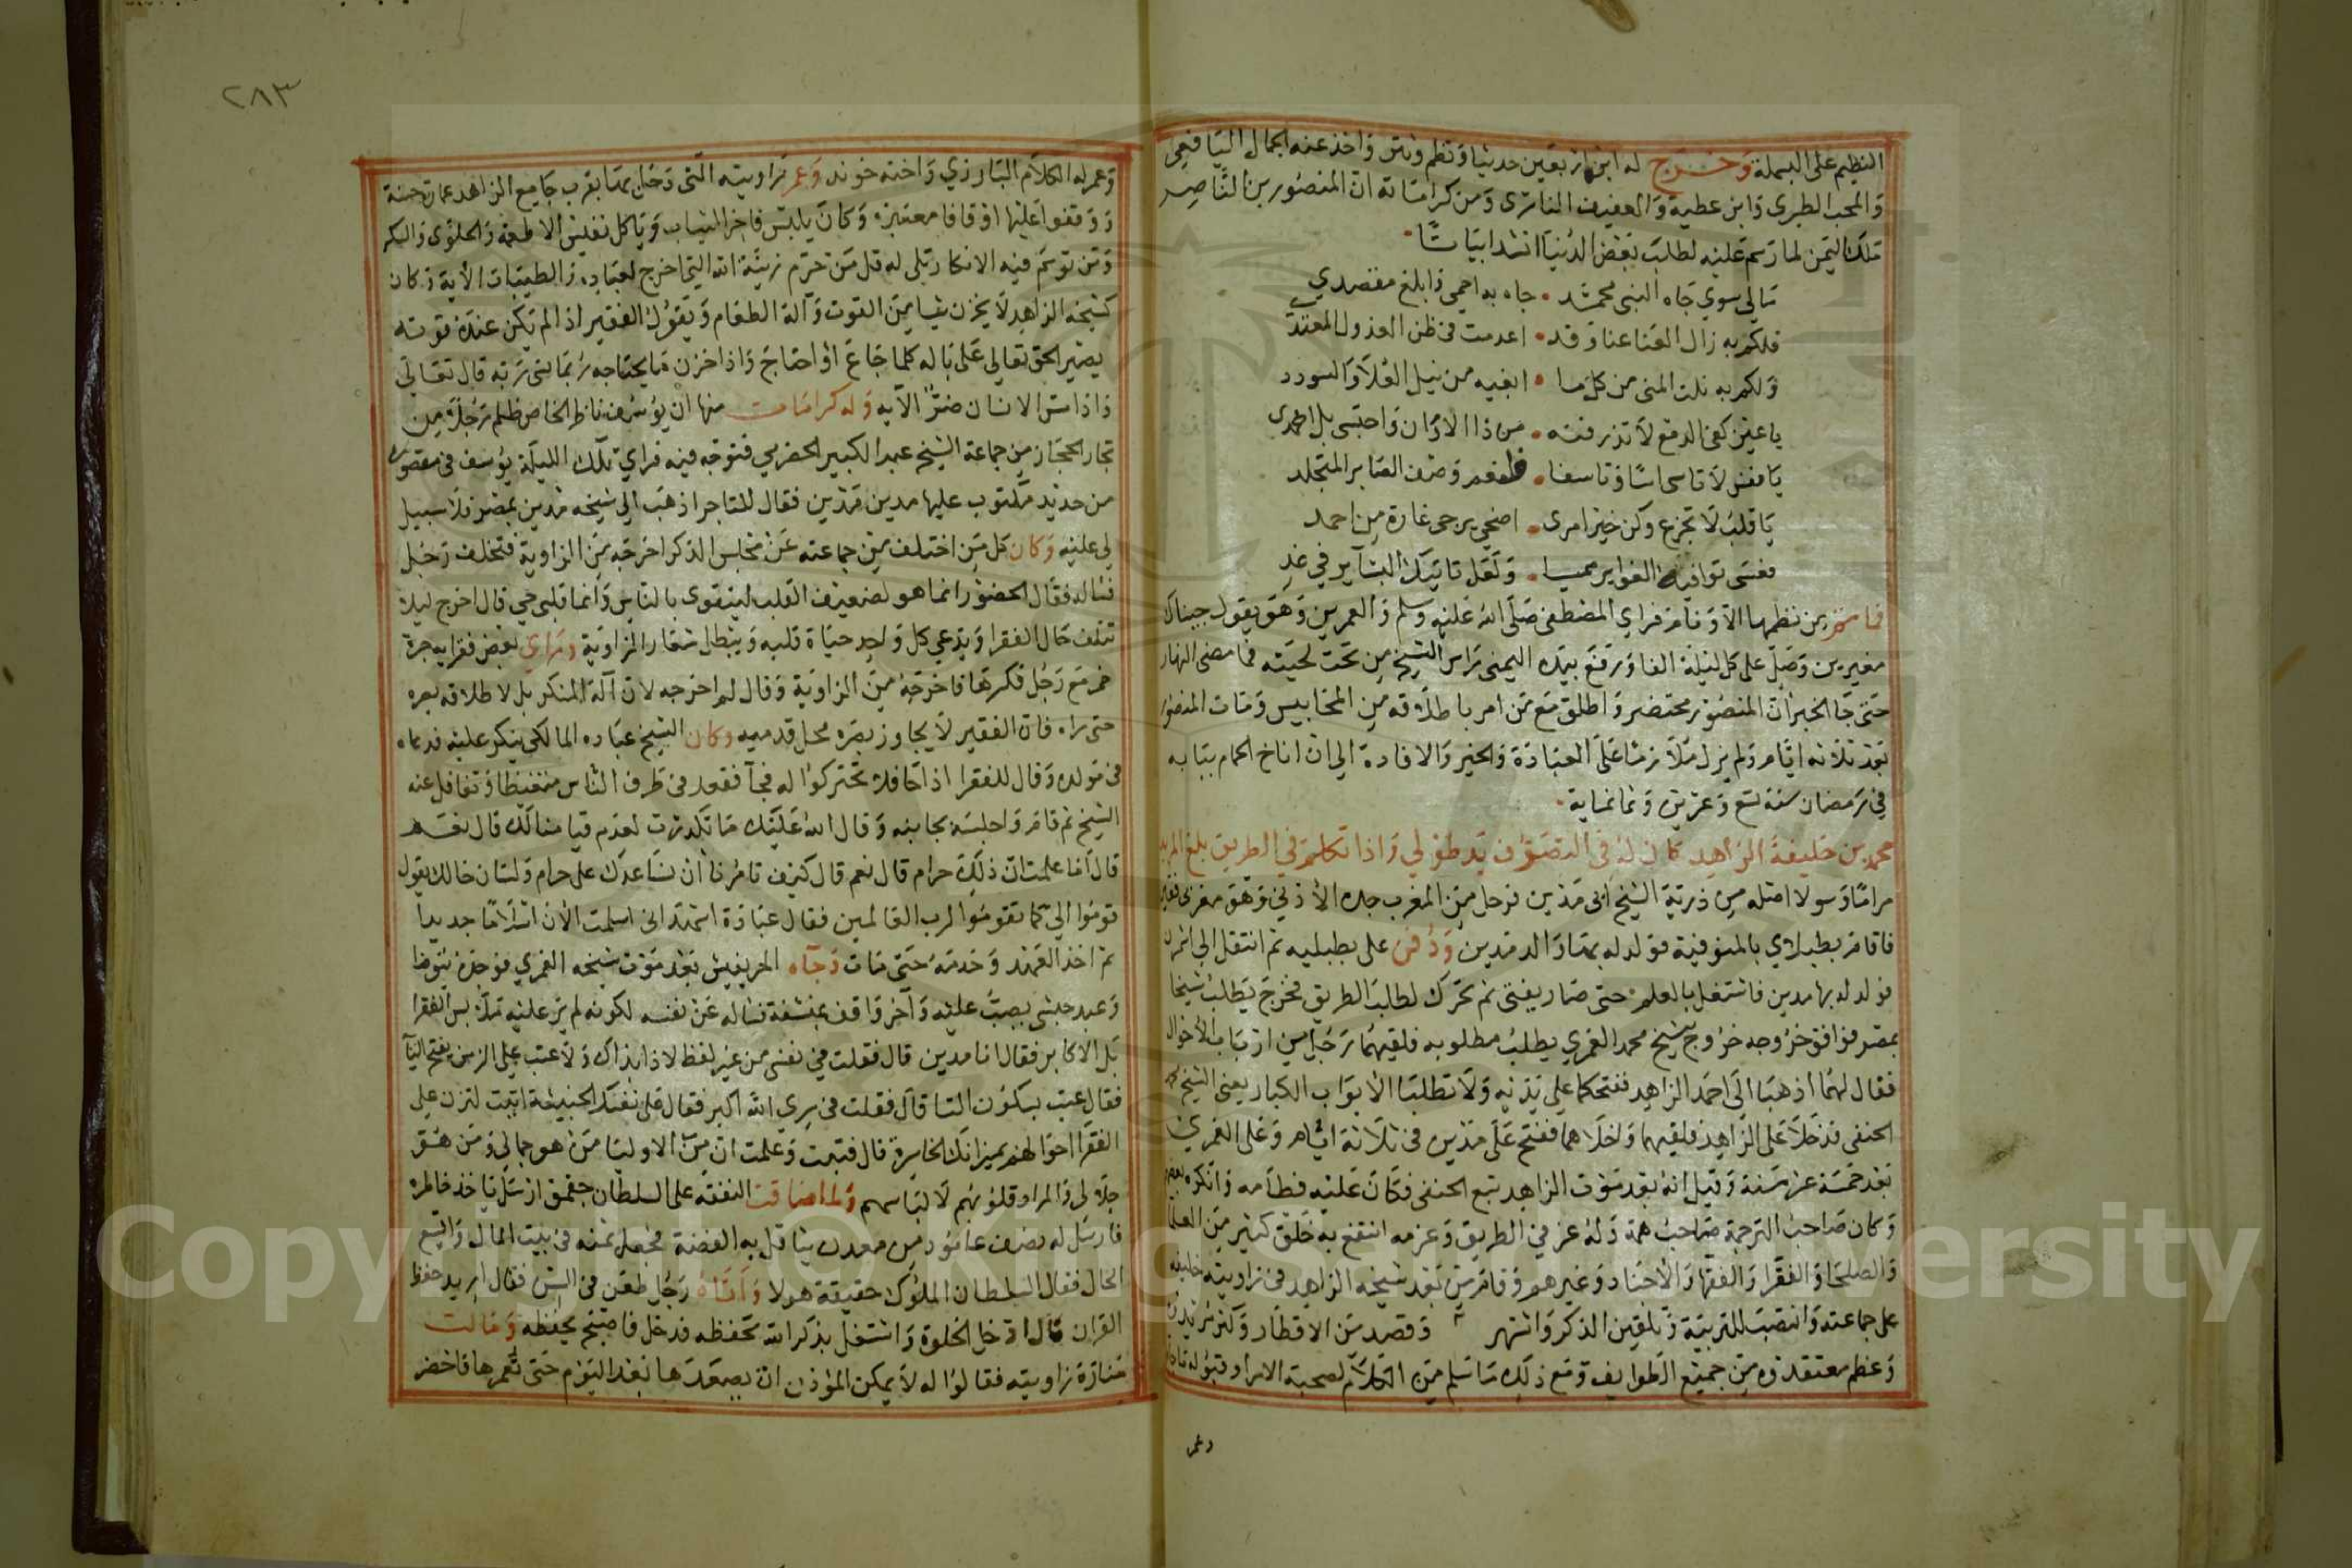 النظيم على البسملة وخرج له ابن اربعين حديثا ونظم ونثر واخذ عنه الجمال اليافعي
والمحب الطبري وابن عطية والعفيف الناشري ومن كراماته ان المنصور بن الناصر
ملك اليمن لما رسم عليه لطلب بعض الدنيا انشد ابياتا
مالي سوي جاه النبي محمد • جاه به احمي وابلغ مقصدي
فلكم به زال العنا عنا وقد • اعدمت في ظن العذول المعتدي
ولكم به نلت المنى من كل ما • ابغيه من نيل العلا والسودد
يا عين كفي الدمع لا تذرفنه • من ذا الاوان واحبسي بل اجمدي
يا نفس لا تاسي اسا وتاسفا • وصف الصابر المتجلد
يا قلب لا تجزع وكن خير امرى • اضحي يرجى غارة من احمد
فعسى توافيك الغوا ير ممسيا • ولعل تاتيك البشاير في غد
فما من نظمها الا ونام فراي المصطفى صلى الله عليه وسلم والعمرين وهو يقول جيناك
مغيرين وصل على كل ليلة الفا ورفع بيده اليمنى راس الشيخ من تحت لحيته فما مضى النهار
حتى جا الخبر ان المنصور محتضر واطلق مع من امر باطلاقه من المحابيس ومات المنصور
بعد ثلاثه ايام ولم يزل ملازما على العبادة والخير والافادة الى ان اناخ الحمام ببابه
في رمضان سنة تسع وعشرين وثمانماية
محمد بن خليفة الزاهد كان له في التصوف يد طولي واذا تكلم في الطريق بلغ المريد
مراما وسولا اصله من ذرية الشيخ ابي مدين فرحل من المغرب جده الادني وهو مغربي فقير
فاقام بطبلاي بالمنوفية فولد له بها والد مدين ودفن على بطبليه ثم انتقل الى اشمون
فولد له بها مدين فاشتغل بالعلم حتى صار يفتى ثم تحرك لطلب الطريق فخرج يطلب شيخا
بمصر فوافق خروجه خروج شيخ محمد الغمري يطلب مطلوبه فلقيهما رجل من ارباب الاحوال
فقال لهما اذهبا الى احمد الزاهد ففتحكما على يديه ولا تطلبا الابواب الكبار يعني الشيخ محمد
الحنفي فدخلا على الزاهد فلقيهما واخلاهما ففتح على مدين في ثلاثة ايام وعلى الغمري
بعد خمسة عشر سنة وقيل انه بعد موت الزاهد تبع الحنفي فكان عليه فطامه وانكره بعض
وكان صاحب الترجمة صاحب همة وله عز في الطريق وعزمه انتفع به خلق كثير من العلما
والصلحا والفقرا والفقها والاجناد وغيرهم وقام من بعد شيخه الزاهد في زاويته خليفه
على جماعته وانتصب للتربية وتلقين الذكر واشتهر وقصد من الاقطار وكثر
وعظم معتقدوه من جميع الطوايف ومع ذلك ما سلم من الكلام لصحبة الامرا وقبوله
وعمر
٢٨٣
وعمر له الكلام البارزي واخته خوند وعمر زاويته التي دخل بها بقرب جامع الزاهد عمارة حسنة
ووقفوا عليها اوقافا معتبرة وكان يلبس فاخر الثياب وياكل نفيس الاطعمة والحلوى والسكر
ومن توسم فيه الانكار تلى له قل من حرم زينة الله التي اخرج لعباده والطيبات الاية وكان
كشيخه الزاهد لا يخزن شيا من القوت وآلة الطعام ويقول الفقير اذا لم يكن عنده قوته
يصير الحق تعالى على باله كلما جاع او احتاج واذا خزن ما يحتاجه ربما نسى ربه قال تعالى
واذا مس الانسان ضر الآيه وله كرامات منها ان يوسف ناظر الخاص ظلم رجلا من
تجار الحجاز من جماعة الشيخ عبد الكبير الحضرمي فتوجه فيه فراي تلك الليلة يوسف في مقصورة
من حديد مكتوب عليها مدين مدين فقال للتاجر اذهب الي شيخه مدين بمصر فلا سبيل
لي عليه وكان كل من اختلف من جماعته عن مجلس الذكر اخرجه من الزاوية فتخلف رجل
فساله فقال الحضور انما هو لضعيف القلب ليتقوى بالناس وانما قلبي حي قال اخرج ليلا
تتلف حال الفقرا ويدعي كل واحد حياة قلبه ويبطل شعار الزاوية وراي بعض فقرايه جرة
خمر مع رجل فكسرها فاخرجه من الزاوية وقال لم اخرجه لازالة المنكر بل لاطلاقه بصره
حتى راه فان الفقير لا يجاوز بصره محل قدميه وكان الشيخ عباده المالكي ينكر عليه فدعاه
في مولده وقال للفقرا اذا جا فلا تتحركوا له فجآ فقعد في طرف الناس متغيظا وتغافل عنه
الشيخ ثم قام واجلسه بجانبه وقال الله عليك ما تكدرت لعدم قيامنا لك قال نعم
قال اما علمت ان ذلك حرام قال نعم قال كيف تامرنا ان نساعدك على حرام ولسان حالك يقول
قوموا الي كما تقوموا لرب العالمين فقال عبادة اشهد اني اسلمت الآن اسلاما جديدا
ثم اخذ العهد وخدمه حتى مات وجآه الحريفيش بعد موت شيخه الغمري فوجده يتوضا
وعبد حبشي يصب عليه وآخر واقف بمنشفة فساله عن نفسه لكونه لم ير عليه ملابس الفقرا
بل الاكابر فقال انا مدين قال فقلت في نفسي من غير لفظ لا ذا بذاك ولا عتب على الزمن بفتح التآ
فقال عتب بسكون التا قال فقلت في سري الله اكبر فقال على نفسك الخبيثة اتيت لتزن على
الفقرا احوالهم بميزانك الخاسرة قال فتبت وعلمت ان من الاوليا من هو جمالي ومن هو
جلالي والمراد قلوبهم لا لباسهم ولما ضاقت النفقة على السلطان جقمق ارسل ياخذ خاطره
فارسل له نصف عامود من معدن يثاقل به الفضة فجعل ثمنه في بيت المال واتسع
الحال فقال السلطان الملوك حقيقة هولا وأتاه رجل طعن في السن فقال اريد حفظ
القران قال ادخل الخلوة واشتغل بذكر الله تحفظه فدخل فاصبح يحفظه ومالت
منارة زاويته فقالوا له لا يمكن الموذن ان يصعدها بعد اليوم حتى تعمرها فاحضر
Copyright © King Saud University